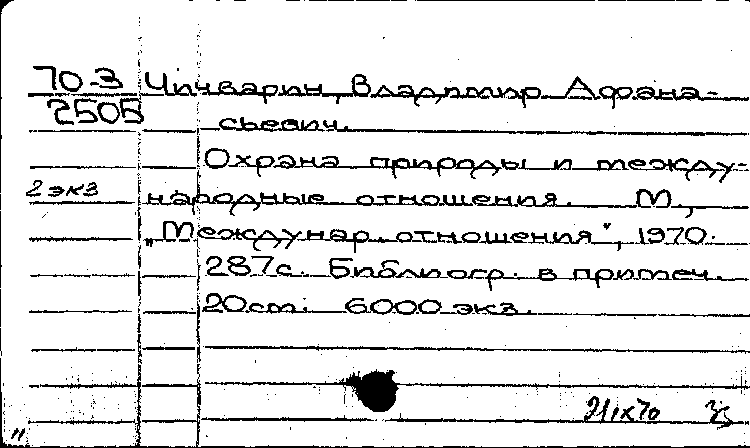 70-3 Чичварин, Владимир Афана-
2505 сьевич.
Охрана природы и между-
2 экз народные отношения. М.,
„Междунар. отношения", 1970.
287с. Библиогр. в примеч.
20см. 6000 экз.
21 IX 70